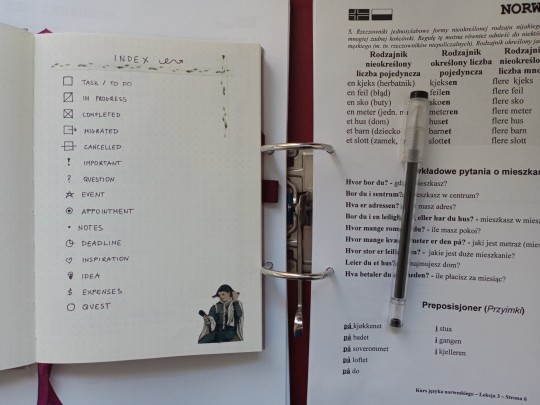 INDEX
TASK / TO DO
IN PROGRESS
COMPLETED
MIGRATED
CANCELLED
! IMPORTANT
? QUESTION
EVENT
APPOINTMENT
• NOTES
DEADLINE
INSPIRATION
IDEA
$ EXPENSES
QUEST
NORW
5. Rzeczowniki jednosylabowe formy nieokreślonej rodzaju nijakiego
mnogiej żadnej końcówki. Regułę tę można również odnieść do niektó
męskiego (m. in. rzeczowników niepoliczalnych). Rodzajnik określony
Rodzajnik Rodzajnik Rodzajnik
nieokreślony określony liczby nieokreśl
liczba pojedyncza pojedyncza liczba mno
en kjeks (herbatnik) kjeksen flere kjeks
en feil (błąd) feilen flere feil
en sko (buty) skoen flere sko
en meter (jedn. meteren flere meter
et hus (dom) huset flere hus
et barn (dziecko barnet flere barn
et slott (zamek, slottet flere slott
kładowe pytania o mieszka
Hvor bor du? - gdzie mieszkasz?
Bor du i sentrum? mieszkasz w centrum?
Hva er adressen? masz adres?
Bor du i en leilighet eller har du hus? - mieszkasz w miesz
Hvor mange rom du? - ile masz pokoi?
Hvor mange kvadratmeter er den på? - jaki jest metraż (mies
Hvor stor er leiligheten? - jakie jest duże mieszkanie?
Leier du et hus? najmujesz dom?
Hva betaler du måneden? - ile płacisz za miesiąc?
Preposisjoner (Przyimki)
på kjøkkenet i stua
på badet i gangen
på soverommet i kjelleren
på loftet
på do
Kurs języka norweskiego – Lekcja 3 – Strona 6